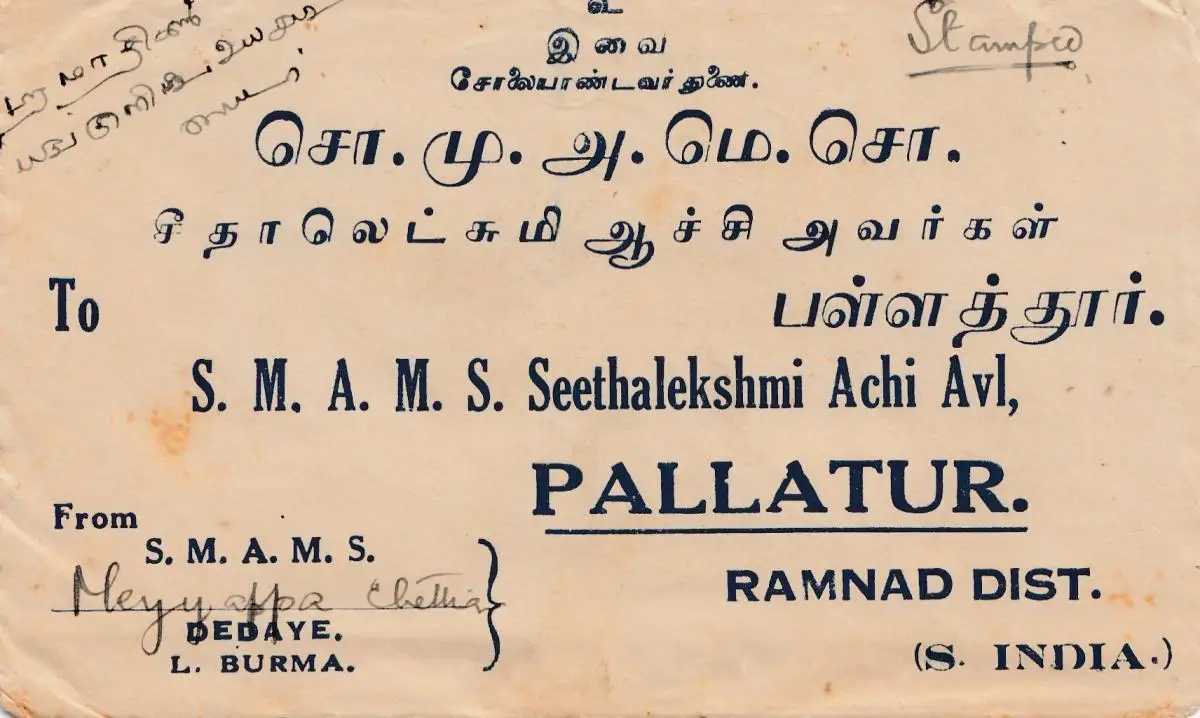 உ
Stamped
இவை
சோலையாண்டவர் துணை.
சொ. மு. அ. மெ. சொ.
சீதாலெட்சுமி ஆச்சி அவர்கள்
To
பள்ளத்தூர்.
S. M. A. M. S. Seethalekshmi Achi Avl,
PALLATUR.
From
S. M. A. M. S.
Meyyappa Chettiar
DEDAYE.
L. BURMA.
RAMNAD DIST.
(S. INDIA.)